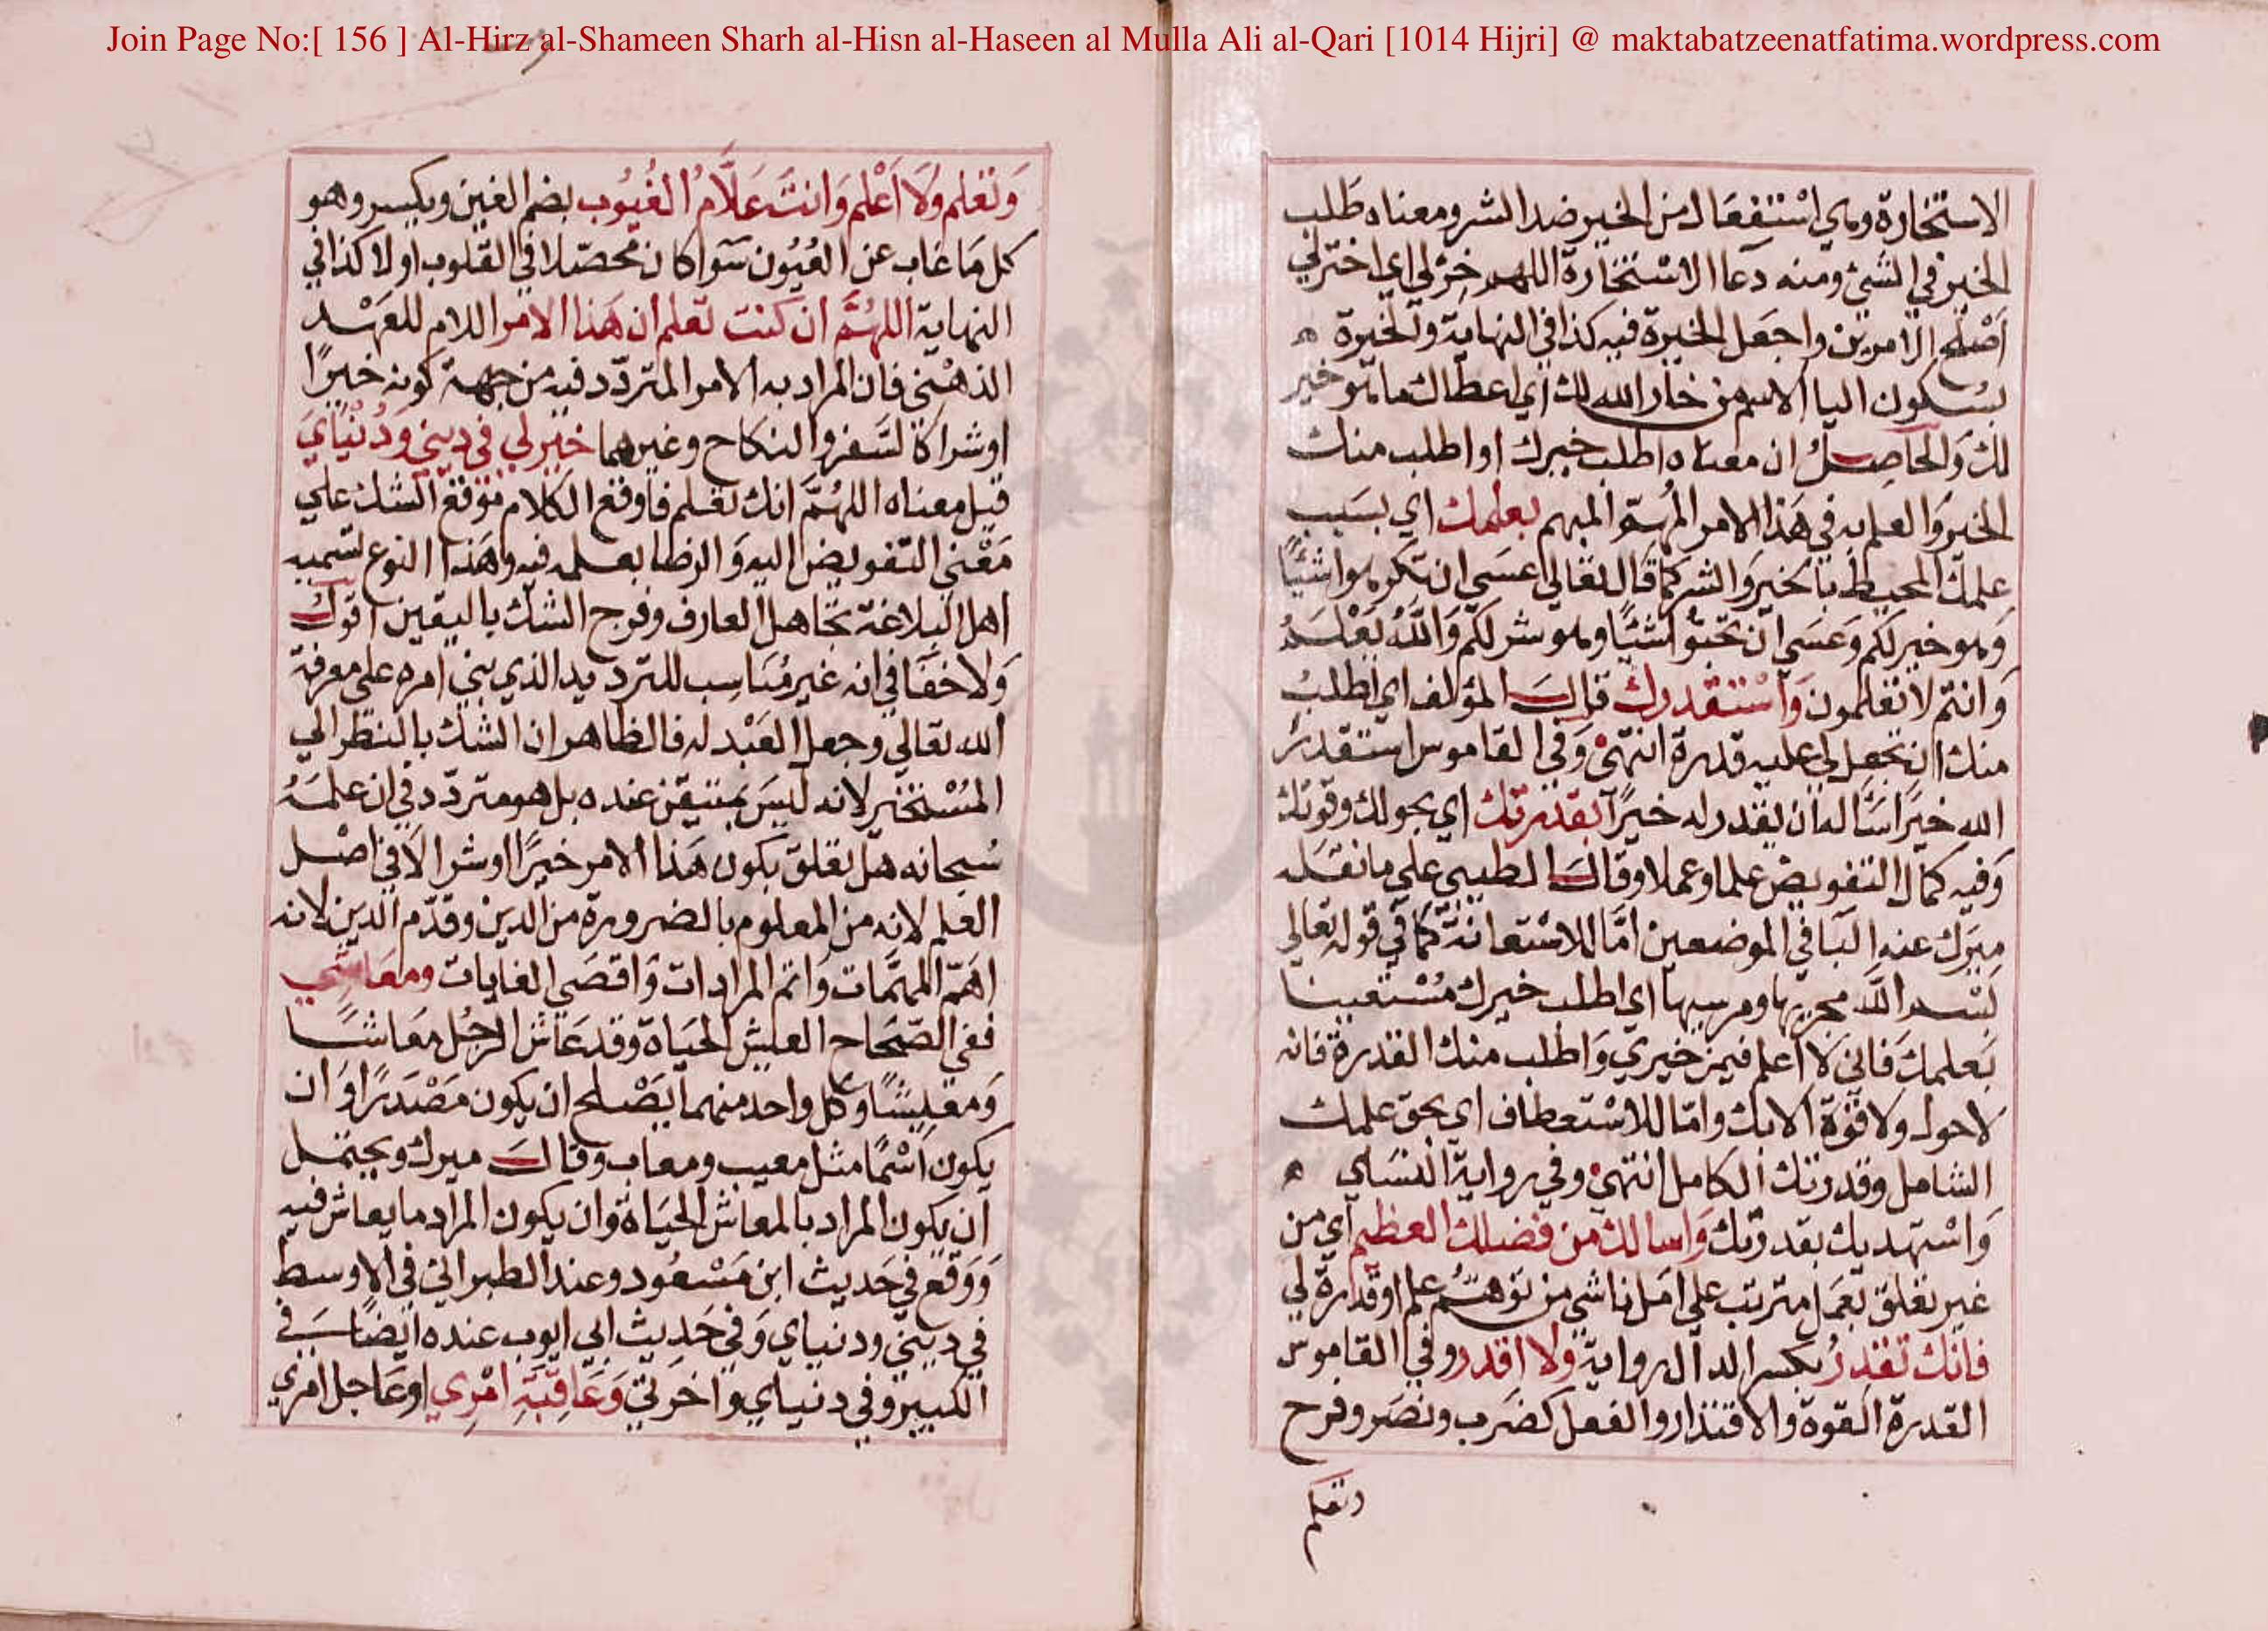 Join Page No:[ 156 ] Al-Hirz al-Shameen Sharh al-Hisn al-Haseen al Mulla Ali al-Qari [1014 Hijri] @ maktabatzeenatfatima.wordpress.com
الاستخارة وهي استفعال من الخير ضد الشر ومعناه طلب
الخير في الشئ ومنه دعاا الاستخارة اللهم خر لي اي اختر لي
اصلح الامرين واجعل الخيرة فيه كذا في النهاية والخيرة ه
بسكون اليا الاسم من خار الله لك اي اعطاك ما هو خير
لك والحاصل ان معناه اطلب خيرك او اطلب منك
الخير والعلم به في هذا الامر المبهم بعلمك اي بسبب
علمك المحيط بالخير والشر كما قال تعالي عسي ان تكرهوا شيئا
وهو خير لكم وعسي ان تحبوا شيئا وهو شر لكم والله يعلم
وانتم لا تعلمون واستقدرك قال المؤلف اي اطلب
منك ان تجعل لي عليه قدرة انتهي وفي القاموس استقدر
الله خيرا ساله ان يقدر له خيرا بقدرتك اي بحولك وقوتك
وفيه كمال التفويض علما وعملا وقال الطيبي علي ما نقله
ميرك عنه البا في الموضعين اما للاستعانة كما في قوله تعالي
بسم الله مجريها ومرسيها اي اطلب خيرك مستعينا
بعلمك فاني لا اعلم فيم خيري واطلب منك القدرة فانه
لا حول ولا قوة الا بك واما للاستعطاف اي بحق علمك
الشامل وقدرتك الكامل انتهي وفي رواية النساي ه
واستهديك بقدرتك واسالك من فضلك العظيم اي من
غير تعلق بعمل مترتب علي امل ناشي من توهم علم او قدرة لي
فانك تقدر بكسر الدال رواية ولا اقدر وفي القاموس
القدرة القوة والاقتدار والفعل كضرب ونصر وفرح
وتعلم
وتعلم ولا اعلم وانت علام الغيوب بضم الغين ويكسر وهو
كل ما غاب عن العيون سوا كان محصلا في القلوب اولا كذا في
النهاية اللهم ان كنت تعلم ان هذا الامر اللام للعهد
الذهني فان المراد به الامر المتردد فيه من جهة كونه خيرا
او شرا كالسفر والنكاح وغيرهما خير لي في ديني ودنياي
قيل معناه اللهم انك تعلم فاوقع الكلام موقع الشك علي
معني التفويض اليه والرضا بعلمه فيه وهذا النوع تسميه
اهل البلاغة تجاهل العارف ومزج الشك باليقين اقول
ولا خفا في انه غير مناسب للترديد الذي بني امره علي معرفة
الله تعالي وجهل العبد له فالظاهر ان الشك بالنظر الي
المستخير لانه ليس بمتيقن عنده بل هو متردد في ان علمه
سبحانه هل تعلق بكون هذا الامر خيرا او شرا لا في اصل
العلم لانه من المعلوم بالضرورة من الدين وقدم الدين لانه
اهم المهمات واتم المرادات واقصي الغايات ومعاشي
ففي الصحاح العيش الحياة وقد عاش الرجل معاشا
ومعيشا وكل واحد منهما يصلح ان يكون مصدرا وان
يكون اسما مثل معيب ومعاب وقال ميرك ويحتمل
ان يكون المراد بالمعاش الحياة وان يكون المراد ما يعاش فيه
ووقع في حديث ابن مسعود وعند الطبراني في الاوسط
في ديني ودنياي وفي حديث ابي ايوب عنده ايضا في
الكبير وفي دنياي واخرتي وعاقبة امري او عاجل امري